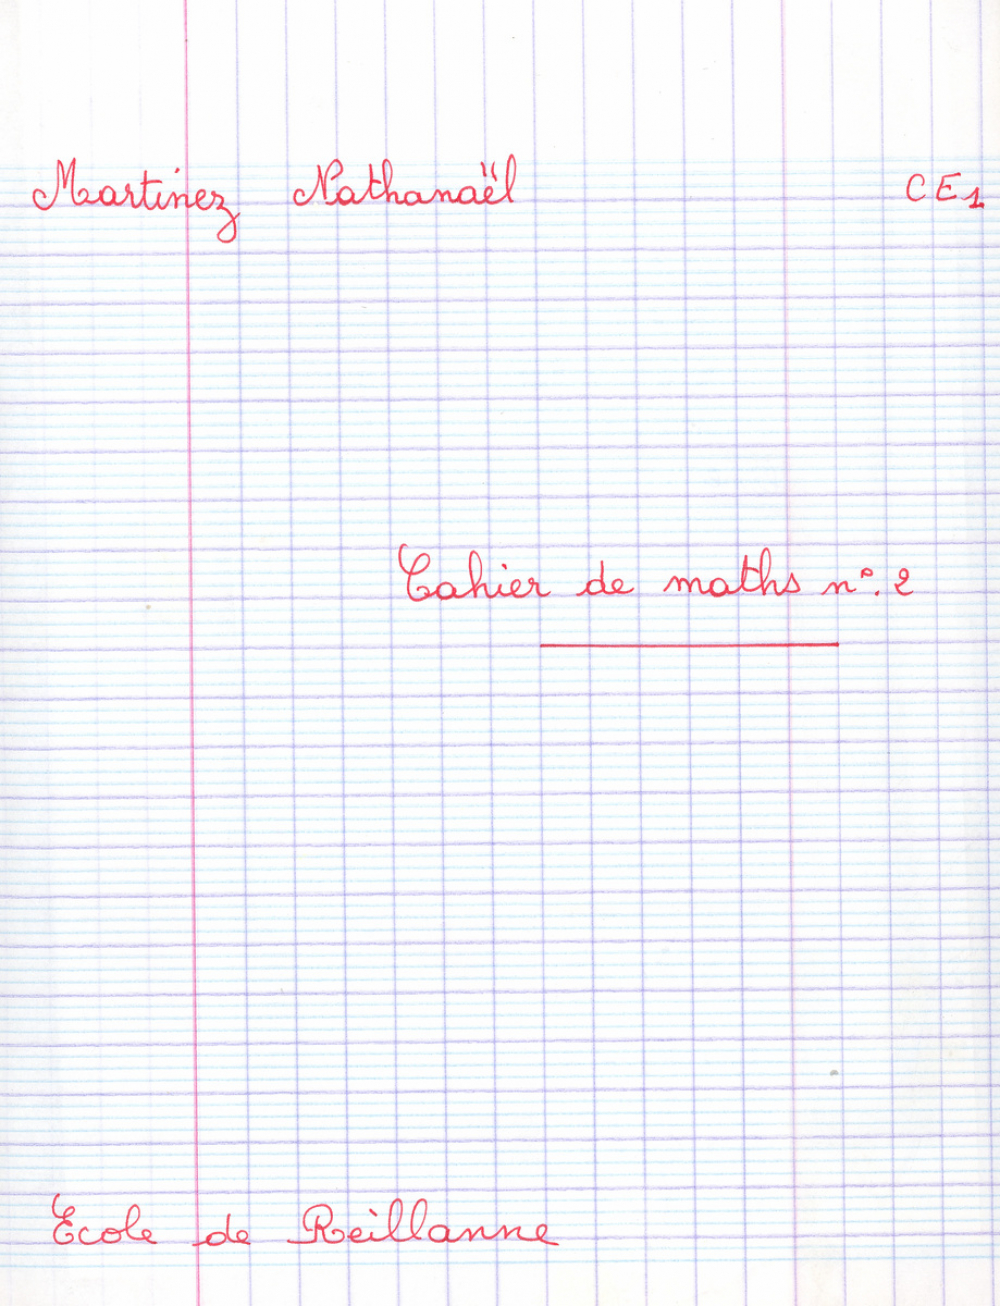 Martinez Nathanaël CE1
Cahier de maths n°. 2
Ecole de Reillanne